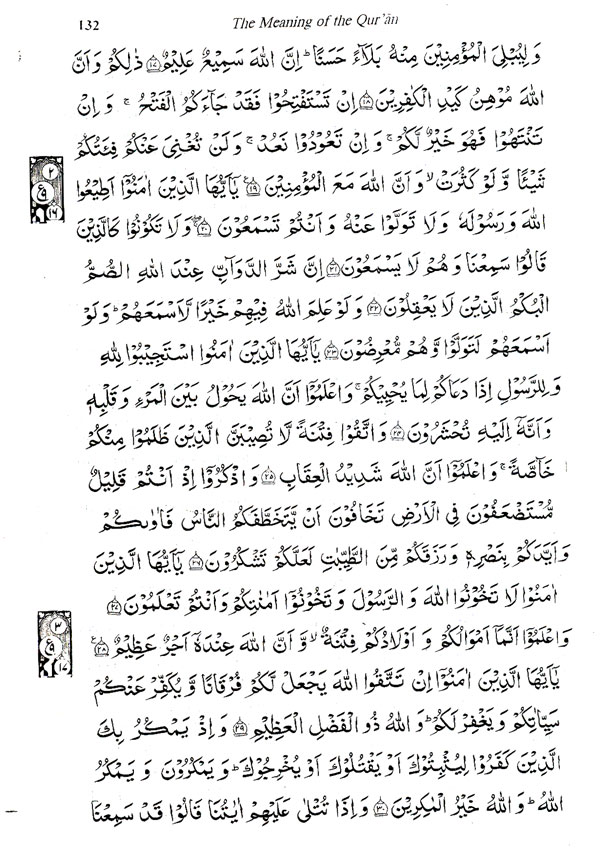 132 The Meaning of the Qur'ān
وَ لِيُبْلِيَ الْمُؤْمِنِيْنَ مِنْهُ بَلَآءً حَسَنًا ؕ اِنَّ اللّٰهَ سَمِيْعٌ عَلِيْمٌ ﴿۱۷﴾ ذٰلِكُمْ وَ اَنَّ
اللّٰهَ مُوْهِنُ كَيْدِ الْكٰفِرِيْنَ ﴿۱۸﴾ اِنْ تَسْتَفْتِحُوْا فَقَدْ جَآءَكُمُ الْفَتْحُ ۚ وَ اِنْ
تَنْتَهُوْا فَهُوَ خَيْرٌ لَّكُمْ ۚ وَ اِنْ تَعُوْدُوْا نَعُدْ ۚ وَ لَنْ تُغْنِيَ عَنْكُمْ فِئَتُكُمْ
شَيْئًا وَّ لَوْ كَثُرَتْ ۙ وَ اَنَّ اللّٰهَ مَعَ الْمُؤْمِنِيْنَ ﴿۱۹﴾ يٰۤاَيُّهَا الَّذِيْنَ اٰمَنُوْۤا اَطِيْعُوا
۲
ع
۱۶
اللّٰهَ وَ رَسُوْلَهٗ وَ لَا تَوَلَّوْا عَنْهُ وَ اَنْتُمْ تَسْمَعُوْنَ ﴿۲۰﴾ وَ لَا تَكُوْنُوْا كَالَّذِيْنَ
قَالُوْا سَمِعْنَا وَ هُمْ لَا يَسْمَعُوْنَ ﴿۲۱﴾ اِنَّ شَرَّ الدَّوَآبِّ عِنْدَ اللّٰهِ الصُّمُّ
الْبُكْمُ الَّذِيْنَ لَا يَعْقِلُوْنَ ﴿۲۲﴾ وَ لَوْ عَلِمَ اللّٰهُ فِيْهِمْ خَيْرًا لَّاَسْمَعَهُمْ ؕ وَ لَوْ
اَسْمَعَهُمْ لَتَوَلَّوْا وَّ هُمْ مُّعْرِضُوْنَ ﴿۲۳﴾ يٰۤاَيُّهَا الَّذِيْنَ اٰمَنُوا اسْتَجِيْبُوْا لِلّٰهِ
وَ لِلرَّسُوْلِ اِذَا دَعَاكُمْ لِمَا يُحْيِيْكُمْ ۚ وَ اعْلَمُوْۤا اَنَّ اللّٰهَ يَحُوْلُ بَيْنَ الْمَرْءِ وَ قَلْبِهٖ
وَ اَنَّهٗۤ اِلَيْهِ تُحْشَرُوْنَ ﴿۲۴﴾ وَ اتَّقُوْا فِتْنَةً لَّا تُصِيْبَنَّ الَّذِيْنَ ظَلَمُوْا مِنْكُمْ
خَآصَّةً ۚ وَ اعْلَمُوْۤا اَنَّ اللّٰهَ شَدِيْدُ الْعِقَابِ ﴿۲۵﴾ وَ اذْكُرُوْۤا اِذْ اَنْتُمْ قَلِيْلٌ
مُّسْتَضْعَفُوْنَ فِي الْاَرْضِ تَخَافُوْنَ اَنْ يَّتَخَطَّفَكُمُ النَّاسُ فَاٰوٰىكُمْ
وَ اَيَّدَكُمْ بِنَصْرِهٖ وَ رَزَقَكُمْ مِّنَ الطَّيِّبٰتِ لَعَلَّكُمْ تَشْكُرُوْنَ ﴿۲۶﴾ يٰۤاَيُّهَا الَّذِيْنَ
اٰمَنُوْا لَا تَخُوْنُوا اللّٰهَ وَ الرَّسُوْلَ وَ تَخُوْنُوْۤا اَمٰنٰتِكُمْ وَ اَنْتُمْ تَعْلَمُوْنَ ﴿۲۷﴾
وَ اعْلَمُوْۤا اَنَّمَاۤ اَمْوَالُكُمْ وَ اَوْلَادُكُمْ فِتْنَةٌ ۙ وَّ اَنَّ اللّٰهَ عِنْدَهٗۤ اَجْرٌ عَظِيْمٌ ﴿۲۸﴾
۳
ع
۱۷
يٰۤاَيُّهَا الَّذِيْنَ اٰمَنُوْۤا اِنْ تَتَّقُوا اللّٰهَ يَجْعَلْ لَّكُمْ فُرْقَانًا وَّ يُكَفِّرْ عَنْكُمْ
سَيِّاٰتِكُمْ وَ يَغْفِرْ لَكُمْ ؕ وَ اللّٰهُ ذُو الْفَضْلِ الْعَظِيْمِ ﴿۲۹﴾ وَ اِذْ يَمْكُرُ بِكَ
الَّذِيْنَ كَفَرُوْا لِيُثْبِتُوْكَ اَوْ يَقْتُلُوْكَ اَوْ يُخْرِجُوْكَ ؕ وَ يَمْكُرُوْنَ وَ يَمْكُرُ
اللّٰهُ ؕ وَ اللّٰهُ خَيْرُ الْمٰكِرِيْنَ ﴿۳۰﴾ وَ اِذَا تُتْلٰى عَلَيْهِمْ اٰيٰتُنَا قَالُوْا قَدْ سَمِعْنَا